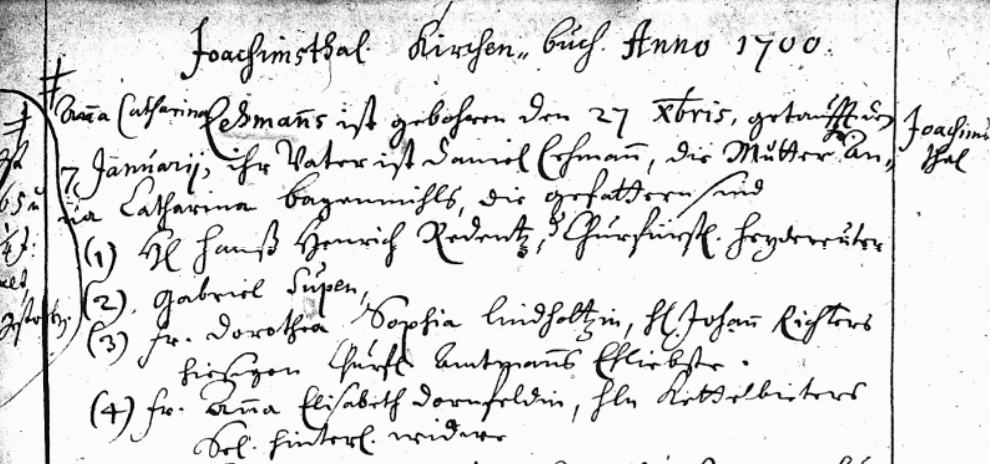 Joachimsthal. Kirchen„ buch. Anno 1700.
Anna Catharina Lehmanns ist gebohren den 27 Xbris, getaufft den
7 Januarij, ihr Vater ist Daniel Lehmann, die Mutter An„
na Catharina bagenmihls, die gefattern sind
(1) H Hanß Henrich Redentz, Churfürstl. Heydereuter
(2). Gabriel Supen,
(3) fr. Dorothea Sophia lindholtzin, H Johann Richters
hiesigen Churf. Amtmanns Ehliebste.
(4) fr. Anna Elisabeth dornfeldin, Hln
Sel. hinterl. widwe
Joachims
thal